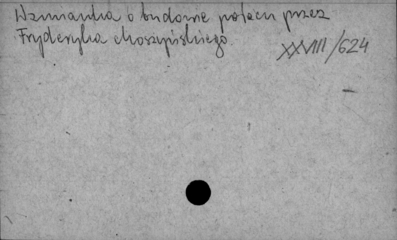 Wzmianka o budowie pałacu przez
Fryderyka Moszyńskiego.
XXVIII/624